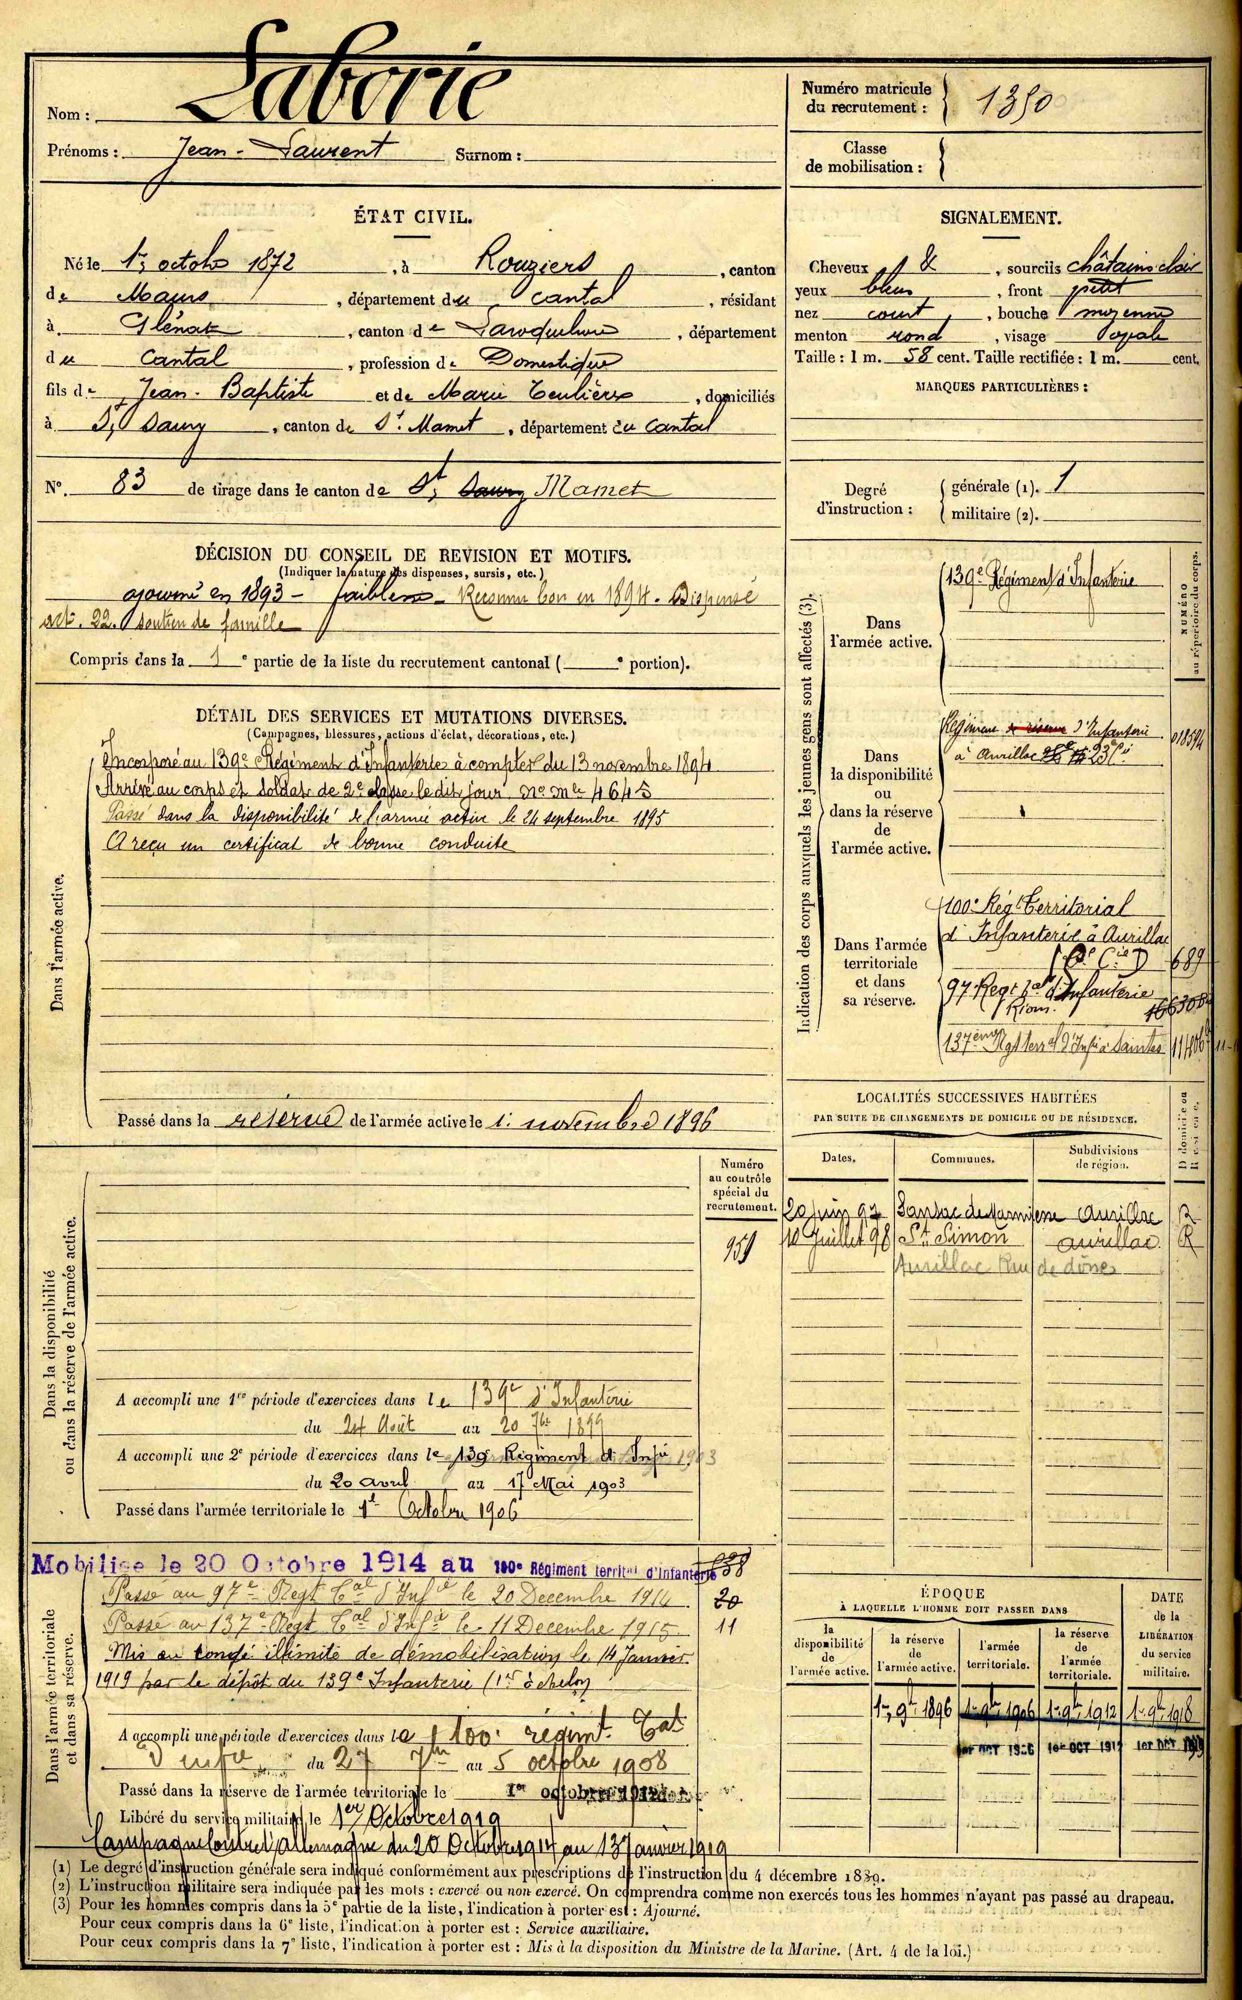 Nom : Laborie
Prénoms : Jean-Laurent Surnom :
Numéro matricule du recrutement : 1350
Classe de mobilisation :
ÉTAT CIVIL.
Né le 1er octobre 1872, à Rouziers, canton
de Maurs, département du Cantal, résidant
à Glénat, canton de Laroquebrou, département
du Cantal, profession de Domestique
fils de Jean-Baptiste et de Marie Teulières, domiciliés
à St Saury, canton de St Mamet, département du Cantal
No. 83 de tirage dans le canton de St Saury Mamet
SIGNALEMENT.
Cheveux &, sourcils châtains clair
yeux bleus, front petit
nez court, bouche moyenne
menton rond, visage ovale
Taille : 1 m. 58 cent. Taille rectifiée : 1 m. cent.
MARQUES PARTICULIÈRES :
Degré d'instruction : générale (1). 1
militaire (2).
DÉCISION DU CONSEIL DE REVISION ET MOTIFS.
(Indiquer la nature des dispenses, sursis, etc.)
ajourné en 1893 - faiblesse - Reconnu bon en 1894. Dispensé
art. 22. soutien de famille
Compris dans la 1e partie de la liste du recrutement cantonal ( e portion).
DÉTAIL DES SERVICES ET MUTATIONS DIVERSES.
(Campagnes, blessures, actions d'éclat, décorations, etc.)
Dans l'armée active.
Incorporé au 139e Régiment d'Infanterie à compter du 13 novembre 1894
Arrivé au corps et soldat de 2e classe le dit jour No Mle 4645
Passé dans la disponibilité de l'armée active le 24 septembre 1895
A reçu un certificat de bonne conduite
Passé dans la réserve de l'armée active le 1er novembre 1896
Indication des corps auxquels les jeunes gens sont affectés (3).
NUMÉRO au répertoire du corps.
Dans l'armée active.
139e Régiment d'Infanterie
Dans la disponibilité ou dans la réserve de l'armée active.
Régiment de réserve d'Infanterie
à Aurillac
018594
Dans l'armée territoriale et dans sa réserve.
100e Régt Territorial
d'Infanterie à Aurillac
Cie D 689
97 Regt tal d'Infanterie
Riom.
137ème Rgt terral d'Infie à Saintes
LOCALITÉS SUCCESSIVES HABITÉES
PAR SUITE DE CHANGEMENTS DE DOMICILE OU DE RÉSIDENCE.
Dates. Communes. Subdivisions de région. Domicile ou Résidence.
20 juin 97 Sansac de Marmiesse Aurillac R
10 Juillet 98 St Simon Aurillac R
Aurillac Rue de
Dans la disponibilité ou dans la réserve de l'armée active.
Numéro au contrôle spécial du recrutement.
959
A accompli une 1re période d'exercices dans le 139e d'Infanterie
du 24 Août au 20 7bre 1899
A accompli une 2e période d'exercices dans le 139e Régiment d'Infie 1903
du 20 avril au 17 Mai 1903
Passé dans l'armée territoriale le 1er Octobre 1906
Dans l'armée territoriale et dans sa réserve.
Mobilisé le 20 Octobre 1914 au 100e Régiment territal d'Infanterie
Passé au 97e Regt Tal d'Infie le 20 Decembre 1914 20
Passé au 137e Regt Tal d'Infie le 11 Decembre 1915 11
Mis en congé illimité de démobilisation le 14 Janvier
1919 par le dépôt du 139e Infanterie (1er échelon)
A accompli une période d'exercices dans le 100e régimt. Tal
d'infie du 27 7bre au 5 octobre 1908
Passé dans la réserve de l'armée territoriale le 1er octobre 1912
Libéré du service militaire le 1er Octobre 1919
Campagne contre l'Allemagne du 20 Octobre 1914 au 13 Janvier 1919
ÉPOQUE
À LAQUELLE L'HOMME DOIT PASSER DANS
DATE de la LIBÉRATION du service militaire.
la disponibilité de l'armée active.
la réserve de l'armée active.
l'armée territoriale.
la réserve de l'armée territoriale.
1er 9bre 1896 1er 9bre 1906 1er 9bre 1912 1er 9bre 1918
1er OCT 1906 1er OCT 1912 1er OCT 1919
(1) Le degré d'instruction générale sera indiqué conformément aux prescriptions de l'instruction du 4 décembre 1889.
(2) L'instruction militaire sera indiquée par les mots : exercé ou non exercé. On comprendra comme non exercés tous les hommes n'ayant pas passé au drapeau.
(3) Pour les hommes compris dans la 5e partie de la liste, l'indication à porter est : Ajourné.
Pour ceux compris dans la 6e liste, l'indication à porter est : Service auxiliaire.
Pour ceux compris dans la 7e liste, l'indication à porter est : Mis à la disposition du Ministre de la Marine. (Art. 4 de la loi.)